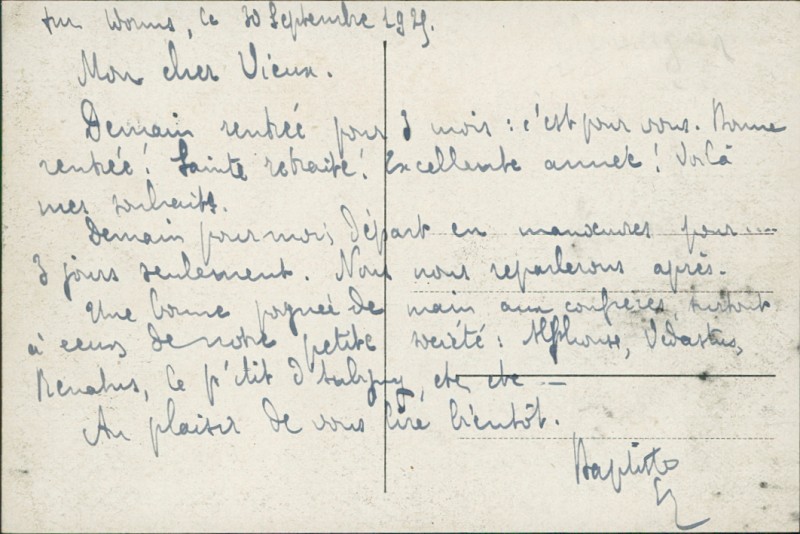 Worms, ce 30 Septembre 1929.
Mon cher Vieux.
Demain rentrée pour 3 mois : c'est pour vous. Bonne
rentrée ! Sainte retraite ! Excellente année ! Voilà
mes souhaits.
Demain pour moi, départ en manœuvres pour....
3 jours seulement. Nous nous reparlerons après.
Une bonne poignée de main aux confrères, surtout
à ceux de notre petite société : Alphonse, Vedastus,
Renatus, le p'tit d'Aubigny, etc, etc —
Au plaisir de vous lire bientôt.
Baptiste